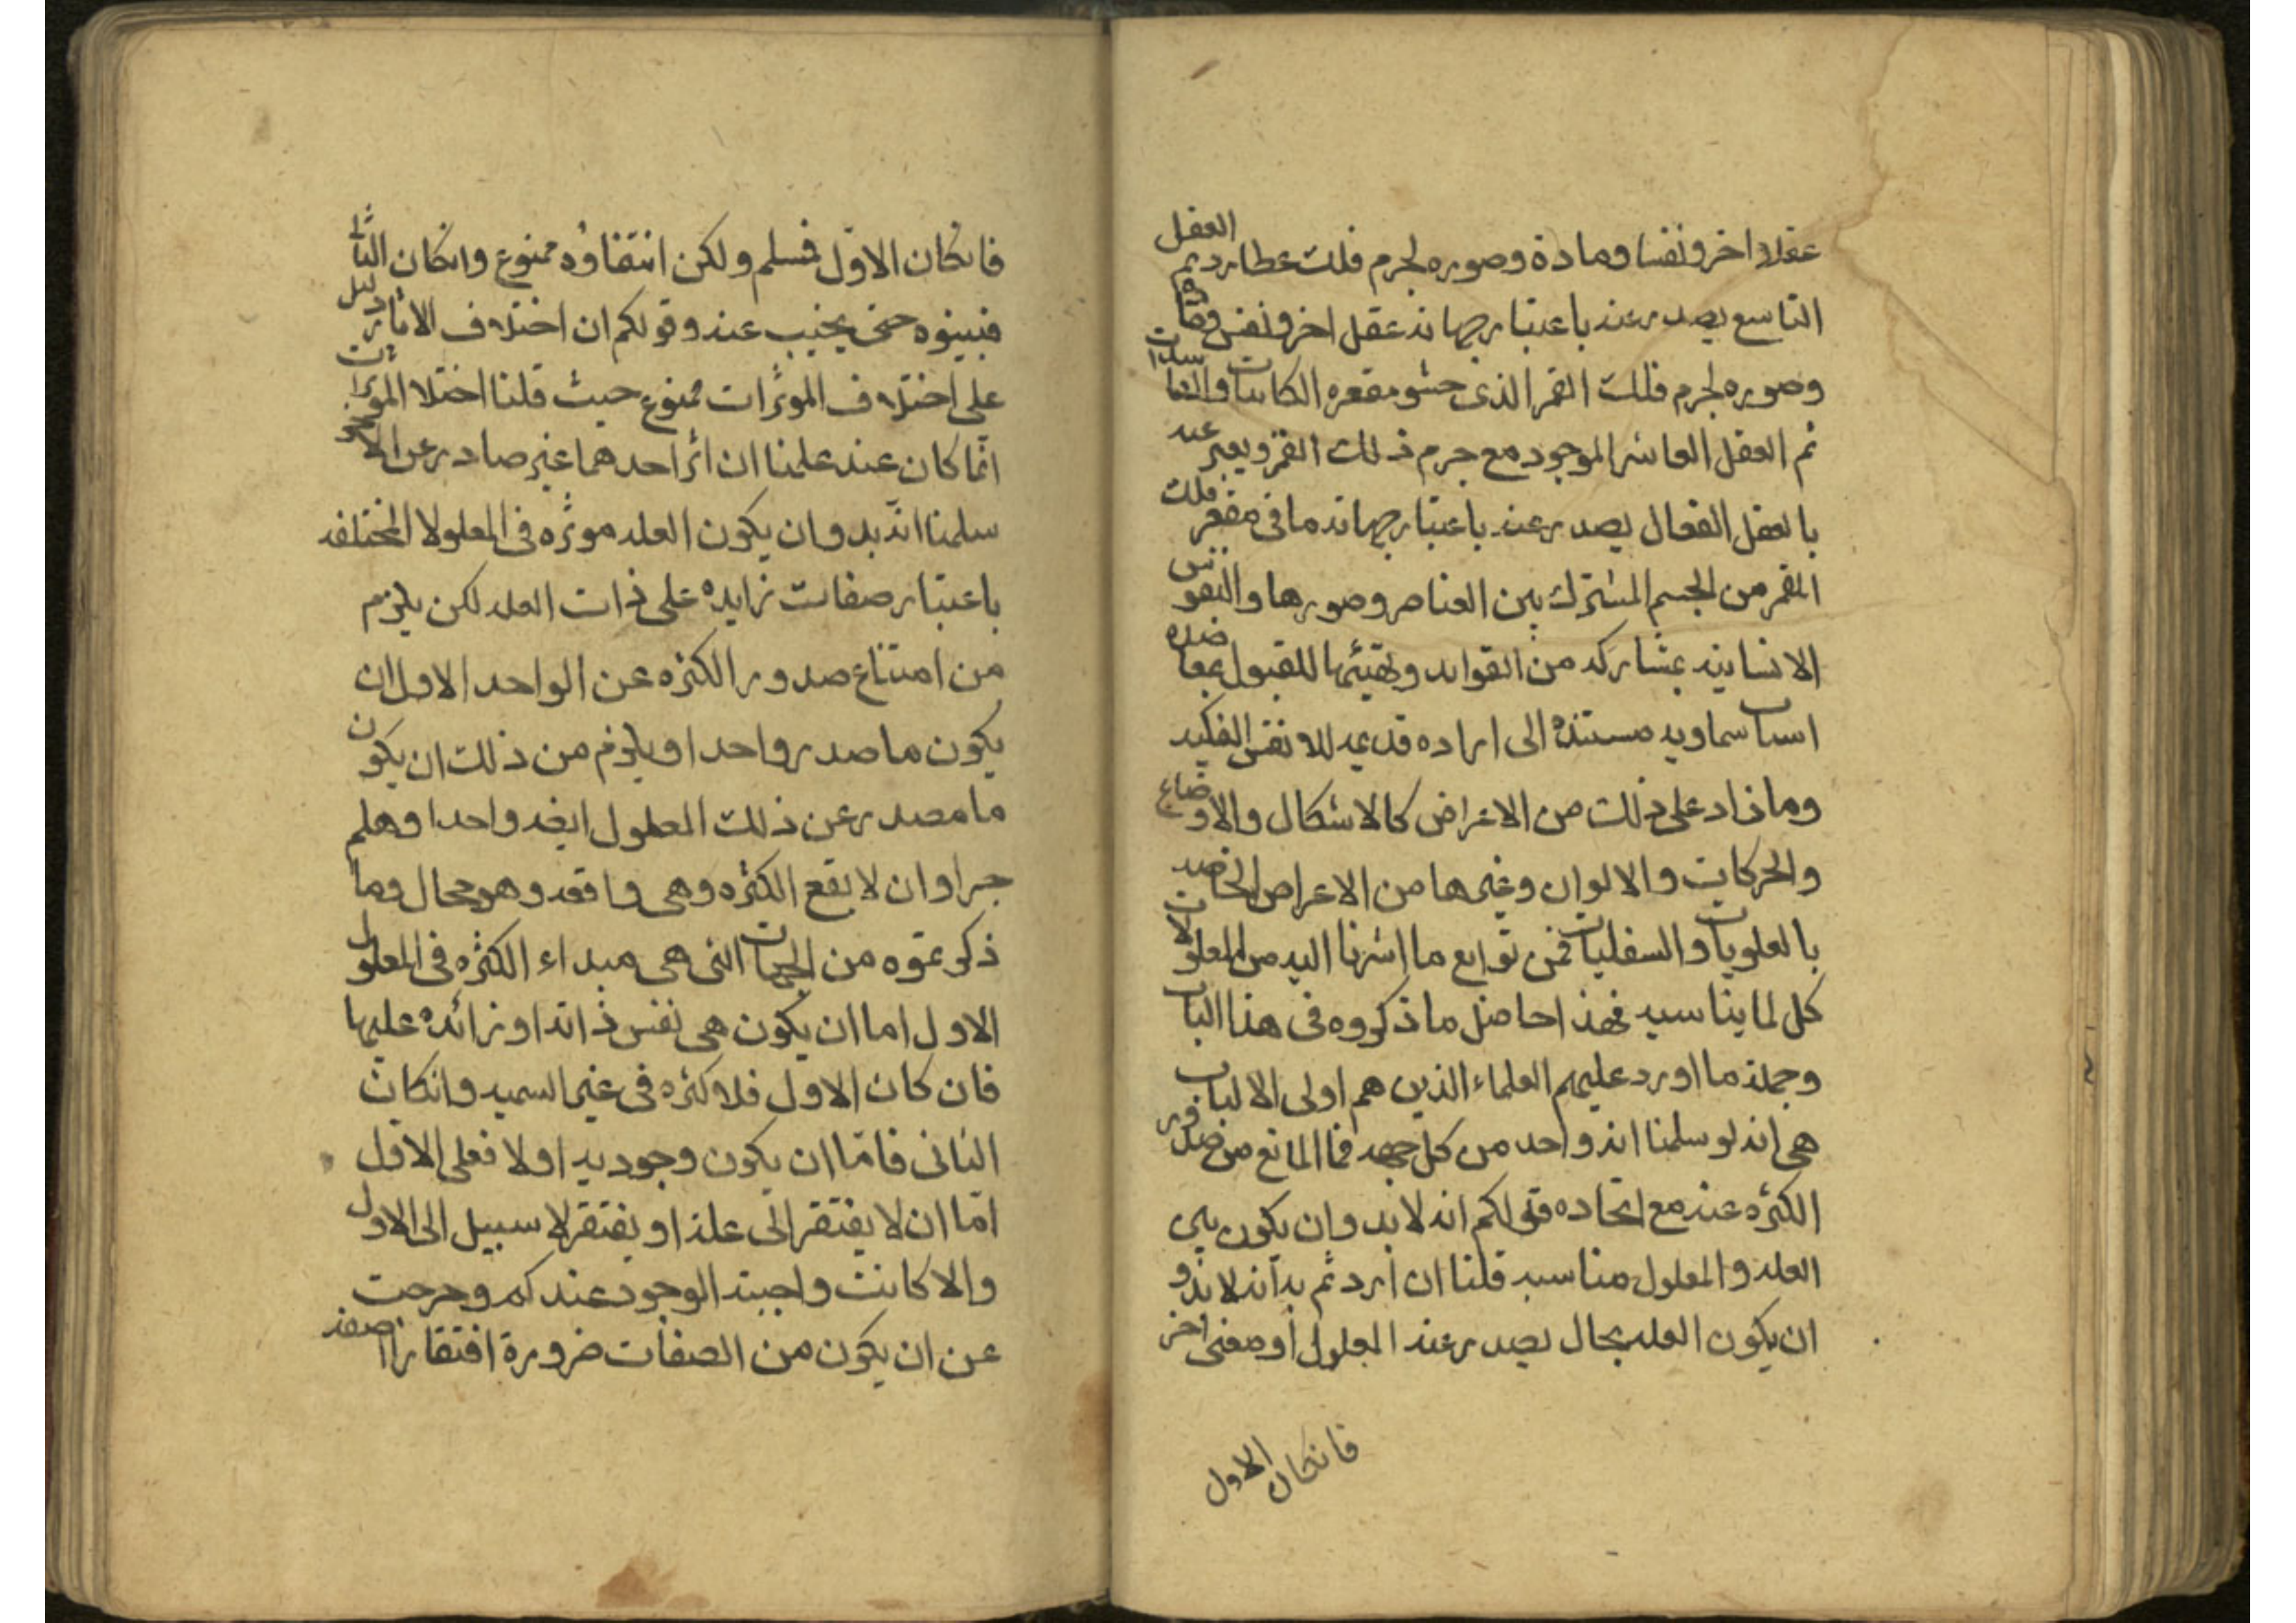 عقلا اخر ونفسا ومادة وصوره لجرم فلك عطارد ثم العقل
التاسع يصدر عنه باعتبار جهاته عقل اخر ونفس ومادة
وصوره لجرم فلك القمر الذى حشو مقعره الكاينات والفاسدات
ثم العقل العاشر الموجود مع جرم ذلك القمر ويعبر عنه
بالعقل الفعال يصدر عنه باعتبار جهاته ما فى مقعر فلك
القمر من الجسم المشترك بين العناصر وصورها والنفوس
الانسانيه بمشاركه من القوابل وتهيئها للقبول بمعاضده
اسباب سماويه مستنده الى اراده قديمه للانفس الفلكيه
وما زاد على ذلك من الاعراض كالاشكال والاوضاع
والحركات والالوان وغيرها من الاعراض الخاصه
بالعلويات والسفليات فمن توابع ما اشرنا اليه من المعلولات
كل لما يناسبه فهذا حاصل ما ذكروه فى هذا الباب
وجملة ما اورد عليهم العلماء الذين هم اولى الالباب
هى انه لو سلمنا انه واحد من كل جهه فما المانع من صدور
الكثره عنه مع اتحاده قولكم انه لا بد وان يكون بين
العله والمعلول مناسبه قلنا ان اردتم به انه لا بد و
ان يكون العله بحال يصدر عنه المعلول او معنى اخر
فانكان الاول
فانكان الاول فمسلم ولكن انتفاؤه ممنوع وانكان الثانى
فبينوه حتى يجيب عنه وقولكم ان اختلاف الاثار دليل
على اختلاف الموثرات ممنوع حيث قلنا اختلا الموثرات
انما كان عند علمنا ان اثر احدهما غير صادر عن الاخر
سلمنا انه بد وان يكون العله موثره فى المعلولا المختلفه
باعتبار صفات زايده على ذات العله لكن يلزم
من امتناع صدور الكثره عن الواحد الاول ان
يكون ما صدر واحدا ويلزم من ذلك ان يكون
ما مصدر عن ذلك المعلول ايضه واحدا وهلم
جرا وان لا يقع الكثره وهى واقعه وهو محال وما
ذكرتموه من الجهات التى هى مبداء الكثره فى المعلول
الاول اما ان يكون هى نفس ذاته او زائده عليها
فان كان الاول فلا كثره فى غير السميه وانكان
الثانى فامّا ان يكون وجوديه اولا فعلى الاول
امّا ان لا يفتقر الى علة او يفتقر لا سبيل الى الاول
والا كانت واجبة الوجود عندكم وخرجت
عن ان يكون من الصفات ضرورة افتقار الصفة